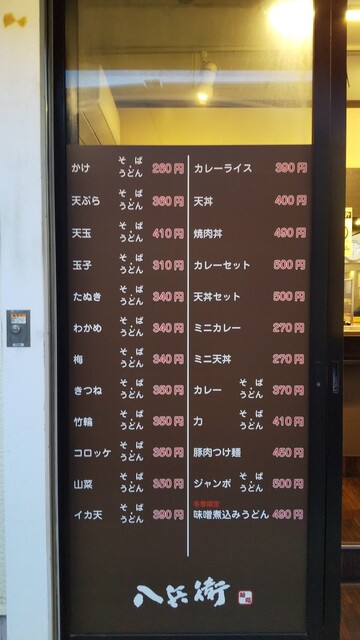 かけ そば・うどん 260円
天ぷら そば・うどん 360円
天玉 そば・うどん 410円
玉子 そば・うどん 310円
たぬき そば・うどん 340円
わかめ そば・うどん 340円
梅 そば・うどん 340円
きつね そば・うどん 350円
竹輪 そば・うどん 350円
コロッケ そば・うどん 350円
山菜 そば・うどん 350円
イカ天 そば・うどん 390円
カレーライス 390円
天丼 400円
焼肉丼 490円
カレーセット 500円
天丼セット 500円
ミニカレー 270円
ミニ天丼 270円
カレー そば・うどん 370円
力 そば・うどん 410円
豚肉つけ麺 450円
ジャンボ そば・うどん 500円
冬季限定
味噌煮込みうどん 490円
八兵衛